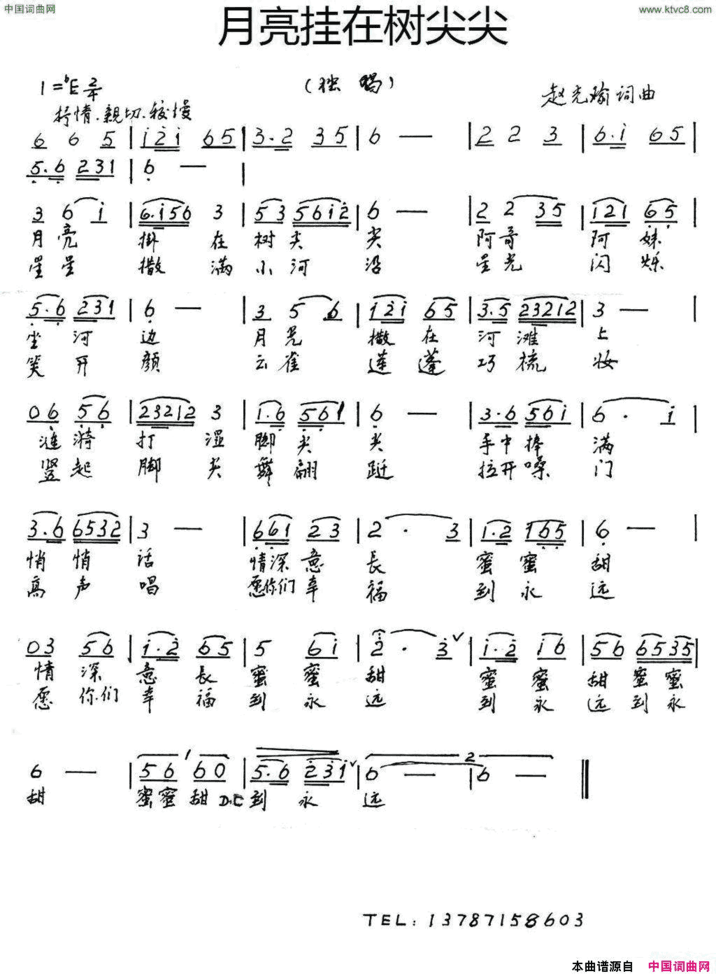 中国词曲网
www.ktvc8.com
月亮挂在树尖尖
1=♭E 2/4
(独唱)
赵光瑜词曲
抒情.亲切.较慢
6 6 5 | i 2 i 6 5 | 3. 2 3 5 | 6 — | 2 2 2 3 | 6. i 6 5 |
5. 6 2 3 1 | 6 — |
3 6 i | 6. i 5 6 3 | 5 3 5 6 i 2 | 6 — | 2 2 3 5 | i 2 i 6 5 |
月亮 掛在树尖尖 阿哥阿妹
星星 撒满小河沿 星光闪烁
5. 6 2 3 1 | 6 — | 3 5 6 | i 2 i 6 5 | 3. 5 2 3 2 1 2 | 3 — |
坐河边 月光撒在河滩上
笑开颜 云雀莲蓬巧梳妆
0 6 5 6 | 2 3 2 1 2 3 | 1. 6 5 6 1 | 6 — | 3. 6 5 6 i | 6 . i |
涟漪打湿脚尖尖 手中捧满
竖起脚尖舞翩跹 拉开嗓门
3. 6 6 5 3 2 | 3 — | 6 6 1 2 3 | 2 . 3 | 1. 2 1 6 5 | 6 — |
悄悄话 情深意長蜜蜜甜
高声唱 愿你们幸福到永远
0 3 5 6 | i. 2 6 5 | 5 6 i | 2 . 3 | i. 2 i 6 | 5 6 6 5 3 5 |
情深意長蜜蜜甜 蜜蜜甜蜜蜜
愿你们幸福到永远 到永远到永
6 — | 5 6 6 0 | 5. 6 2 3 i | 6 — | 6 — ‖
甜 蜜蜜甜 D.C 到永远
TEL: 13787158603
本曲谱源自 中国词曲网